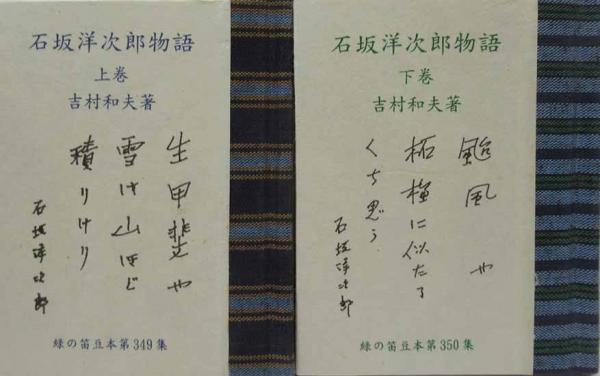 石坂洋次郎物語
上巻
吉村和夫著
生甲斐や
雪は山ほど
積りけり
石坂洋次郎
緑の笛豆本第349集
石坂洋次郎物語
下巻
吉村和夫著
颱風や
柘榴に似たる
くち思う
石坂洋次郎
緑の笛豆本第350集